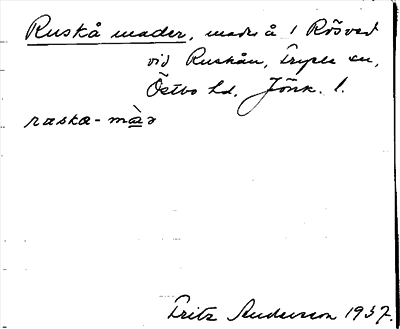 Ruskå mader, made å 1 Rösved
vid Ruskån, Tryele sn,
Östbo hd. Jönk. l.
ruska-màr
Fritz Anderson 1937.